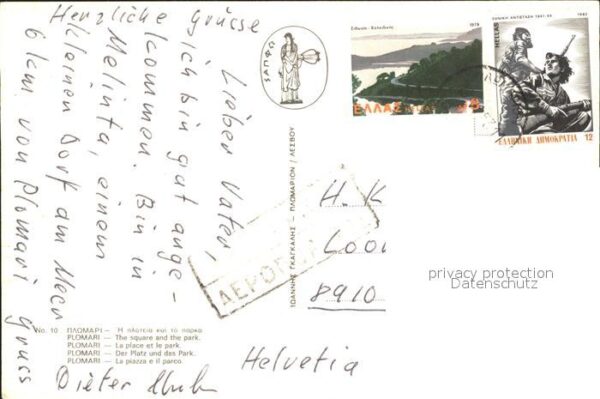 Lieber Vater,
ich bin gut ange-
kommen. Bin in
Melinta, einem
kleinen Dorf am Meer
6 km von Plomari
Herzliche Grüsse
Dieter
ΣΑΠΦΩ
Ειδυλλ - Καταδικής
1979
ΕΛΛΑΣ
8
ΕΘΝΙΚΗ ΑΝΤΙΣΤΑΣΗ 1941-44
1982
HELLAS
ΕΛΛΗΝΙΚΗ ΔΗΜΟΚΡΑΤΙΑ 12
ΙΩΑΝΝΗΣ ΓΚΑΓΚΑΛΗΣ - ΠΛΩΜΑΡΙΟΝ / ΛΕΣΒΟΥ
H. K
8910
Helvetia
privacy protection
Datenschutz
No. 10 ΠΛΩΜΑΡΙ — Η πλατεία καί τό πάρκο
PLOMARI — The square and the park.
PLOMARI — La place et le park.
PLOMARI — Der Platz und das Park.
PLOMARI — La piazza e il parco.